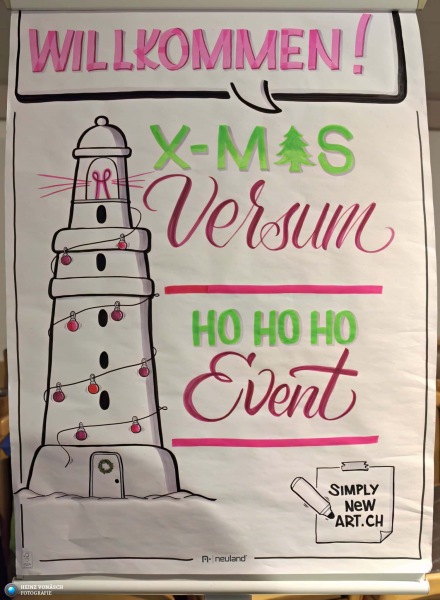 WILLKOMMEN!
X-MAS
Versum
HO HO HO
Event
SIMPLY
NEW
ART.CH
neuland
HEINZ VONÄSCH
FOTOGRAFIE